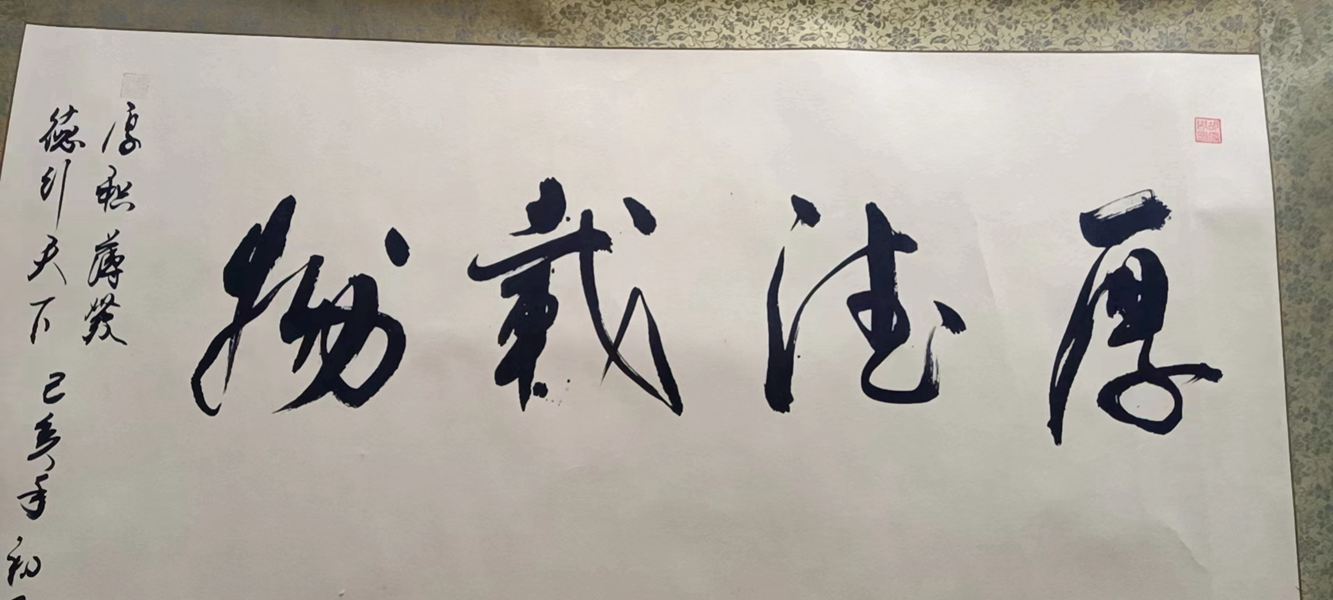 厚德载物
厚积薄發
德引天下 己亥年初